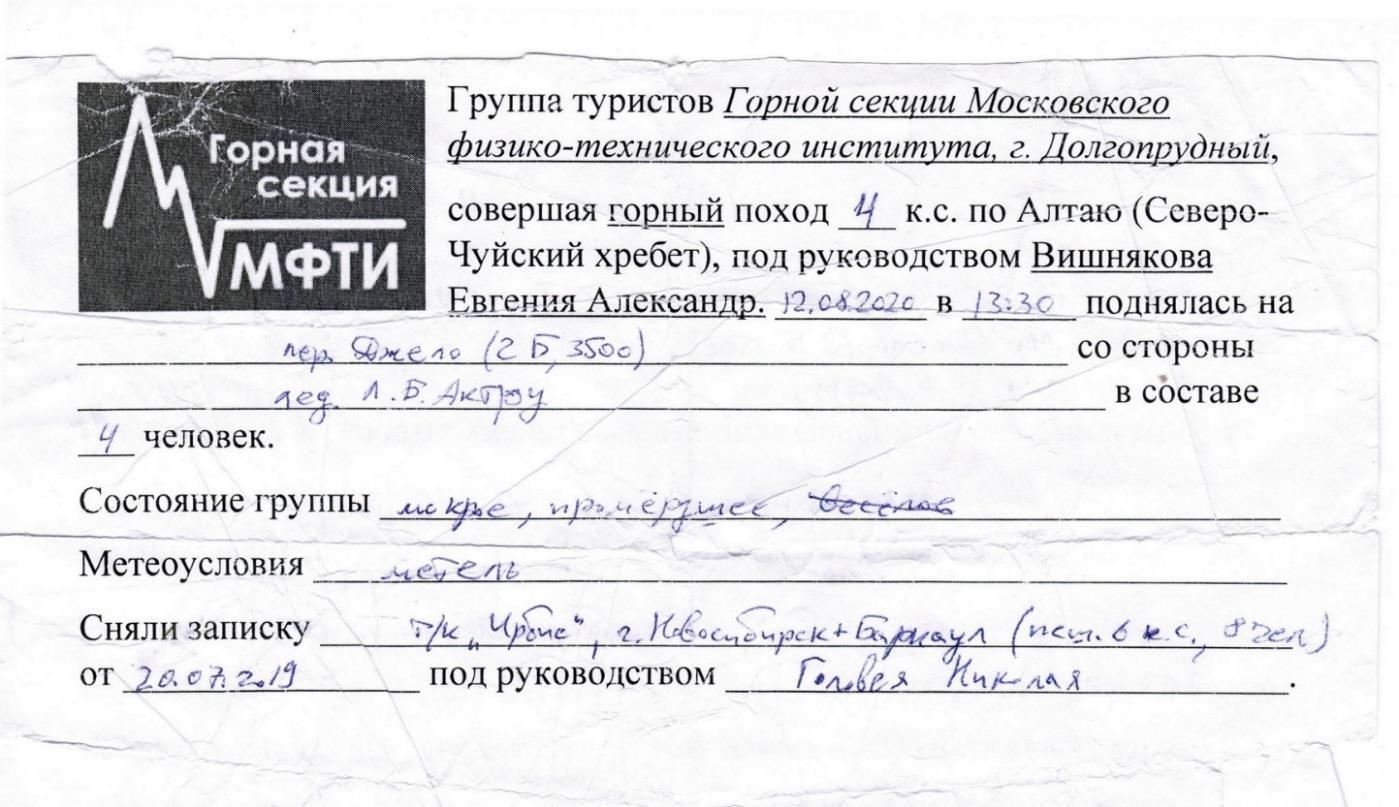 Горная
секция
МФТИ
Группа туристов Горной секции Московского
физико-технического института, г. Долгопрудный,
совершая горный поход 4 к.с. по Алтаю (Северо-
Чуйский хребет), под руководством Вишнякова
Евгения Александр. 12.08.2020 в 13:30 поднялась на
пер. Джело (2Б, 3500) со стороны
лед. Л.Б. Актру в составе
4 человек.
Состояние группы мокрые, промёрзшее,
Метеоусловия метель
Сняли записку т/к „Ирбис", г. Новосибирск+Барнаул (пеш. 6 к.с, 8 чел)
от 20.07.2019 под руководством Головея Николая.